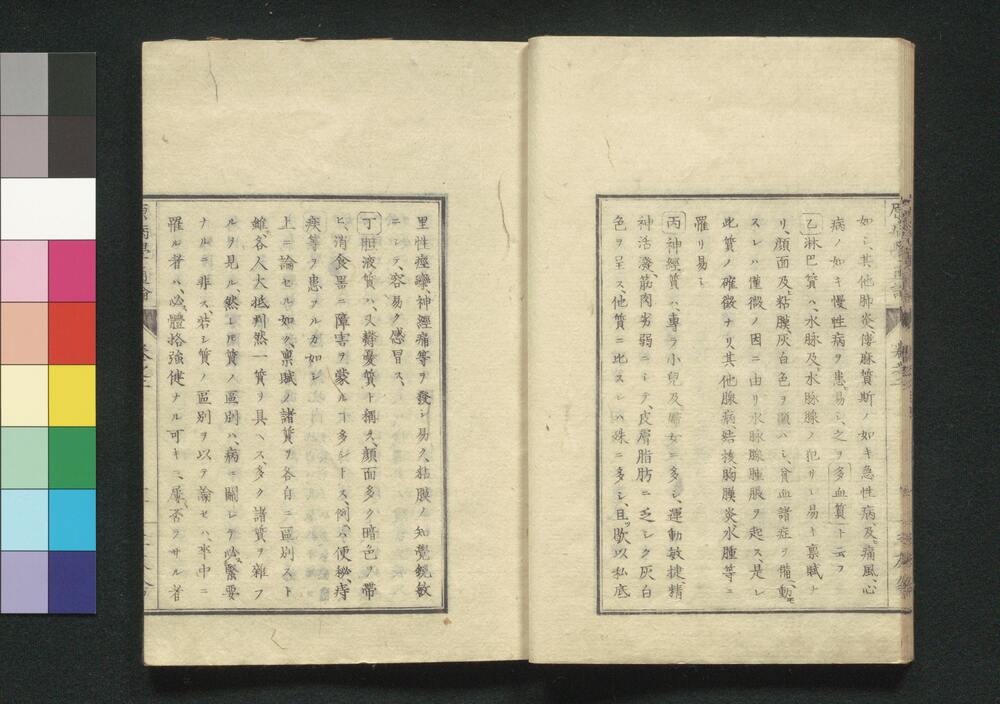 如シ、其他肺炎、僂麻質斯ノ如キ急性病及ヒ痛風、心
病ノ如キ慢性病ヲ患ヒ易シ、之ヲ多血質ト云フ
乙淋巴質ハ、水脉及ヒ水脉腺ノ犯サレ易キ稟賦ナ
リ、顔面及粘膜、灰白色ヲ顕ハシ、貧血諸症ヲ備ヘ、動モ
スレハ僅微ノ因ニ由リ水脉腺腫脹ヲ起ス、是レ
此質ノ確徴ナリ其他腺病、結核、胸膜炎水腫等ニ
罹リ易シ
丙神經質ハ專ラ小兒及ヒ婦女ニ多シ、運動敏捷、精
神活溌、筋肉劣弱ニシテ、皮膚脂肪ニ乏シク灰白
色ヲ呈ス、他質ニ比スレハ殊ニ多シ、且ツ歇以私底
里性痙攣、神經痛等ヲ發シ易ク、粘膜ノ知覺鋭敏
ニシテ、容易ク感冒ス、
丁胆液質ハ、又欝憂質ト稱ス、顔面多ク暗色ヲ帶
ヒ、消食器ニ障害ヲ蒙ルヿ多シトス、例ヘハ便秘、痔
疾等ヲ患フルカ如シ
上ニ論セル如ク、稟賦ノ諸質ヲ各自ニ區別スト
雖𪜈、各人大抵判然一質ヲ具ヘス、多ク諸質ヲ雜フ
ルヲ見ル、然レ𪜈質ノ區別ハ、病ニ關シテ必ス緊要
ナルニ非ス、若シ質ノ區別ヲ以テ論セハ、卒中ニ
罹ル者ハ、必ス體格強健ナル可キニ、屢〻否ラサル者